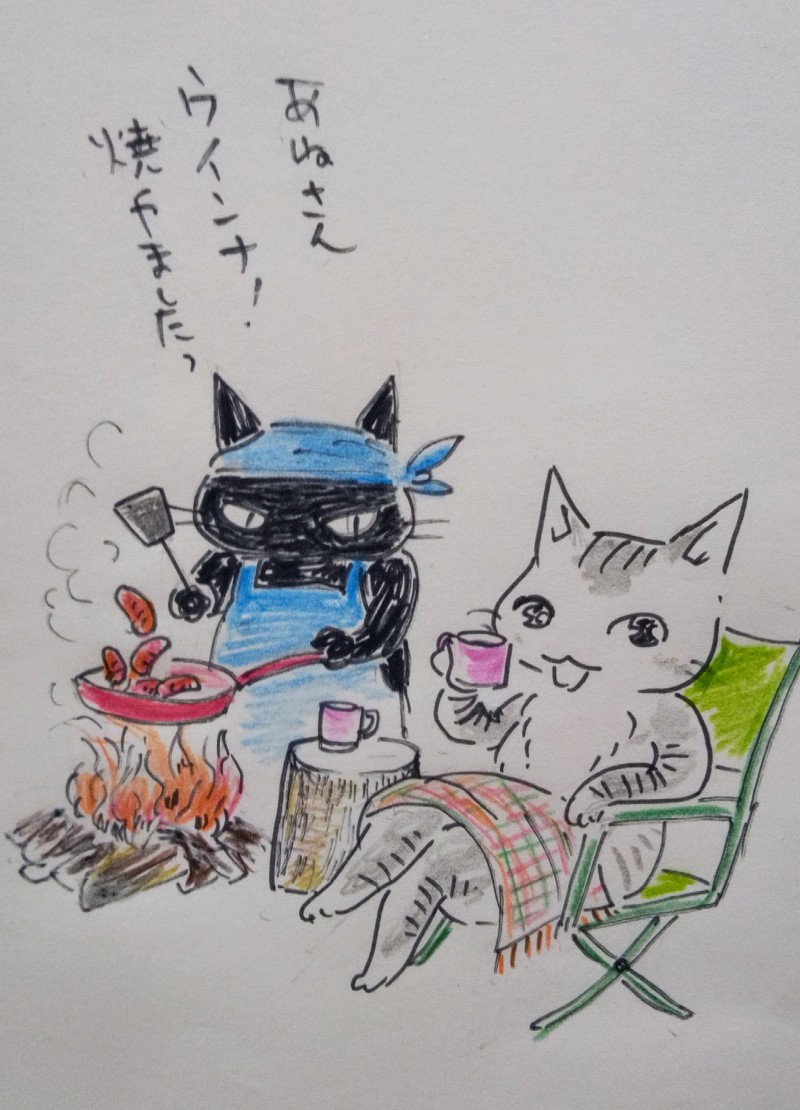 あねさん
ウインナ!
焼やましたっ